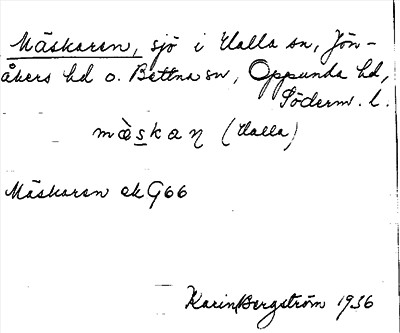 Mäskaren, sjö i Halla sn, Jön-
åkers hd o. Bettna sn, Oppunda hd,
Söderm. l.
mä̀skan (Halla)
Mäskaren ek G66
Karin Bergström 1936